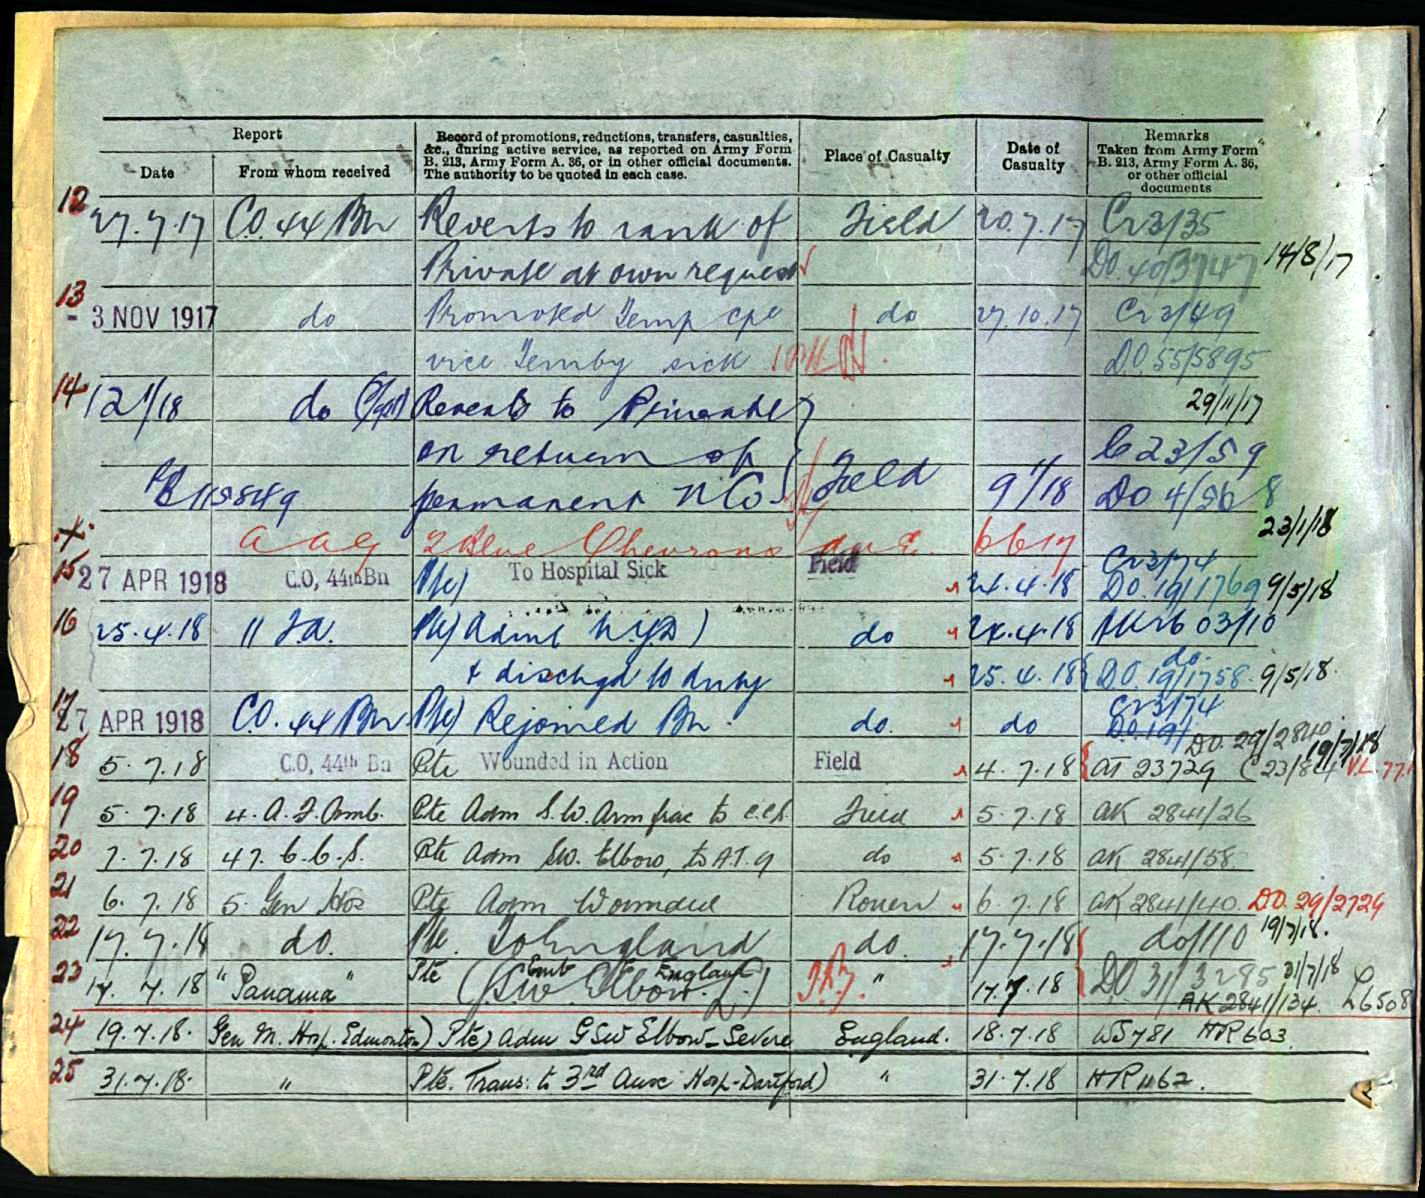 Report
Record of promotions, reductions, transfers, casualties,
&c., during active service, as reported on Army Form
B. 213, Army Form A. 36, or in other official documents.
The authority to be quoted in each case.
Place of Casualty
Date of
Casualty
Remarks
Taken from Army Form
B. 213, Army Form A. 36,
or other official
documents
Date
From whom received
12 27.7.17 C.O. 44 Bn Reverts to rank of Field 20.7.17 Cr3/35
Private at own request DO. 40/3747 14/8/17
13 - 3 NOV 1917 do Promoted Temp Cpl do 27.10.17 Cr 3/49
vice Temby sick DO 55/5895
14 12 1/18 do Reverts to Private 29/11/17
on return of C 23/59
115849 permanent NCO Field 9 1/18 DO 4/56 8
23/1/18
a a g 2 Blue Chevrons 6 6 17
15 27 APR 1918 C.O, 44th Bn Pte) To Hospital Sick Field 24.4.18 Cr3/74
DO. 19/1769 9/5/18
16 25.4.18 11 F.A. Pte) Admt N.Y.D) do 24.4.18 AK26 03/10
do
+ dischgd to duty 25.4.18 DO. 19/1758 9/5/18.
17 27 APR 1918 C.O. 44 Bn Pte) Rejoined Bn. do. do Cr3/74
DO. 19/
DO. 29/2840 19/7/18
18 5.7.18 C.O, 44th Bn Pte Wounded in Action Field 4.7.18 AT 23729 (23/84
19 5.7.18 4. A. F. Amb. Pte Adm S.W. Arm frac to C.C.S. Field 5.7.18 AK 2841/26
20 7.7.18 47. C.C.S. Pte Adm SW. Elbow, to A.T. 9 do 5.7.18 AK 2841/58
21 6.7.18 5 Gen Hos Pte Adm Wounded Rouen 6.7.18 AK 2841/40. DO. 29/2729
22 17.7.18 do. Pte. To England do. 17.7.18 do/110 19/7/18.
23 17.7.18 " Panama " Pte Emb to England " 17.7.18 DO 31/3285 31/7/18
(GSW Elbow. L.) AK 2841/134. L6508
24 19.7.18. Gen M. Hosp. Edmonton) Pte) adm GSW Elbow - Severe England. 18.7.18 WS781 HR603
25 31.7.18. " Pte. Trans: to 3rd Aux Hosp - Dartford) " 31.7.18 HR1162.